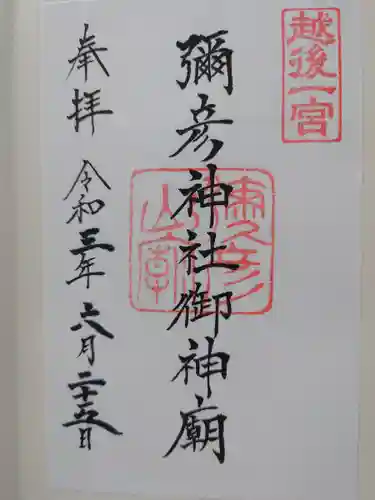 越後一宮
彌彦神社御神廟
奉拝
令和三年六月二十五日